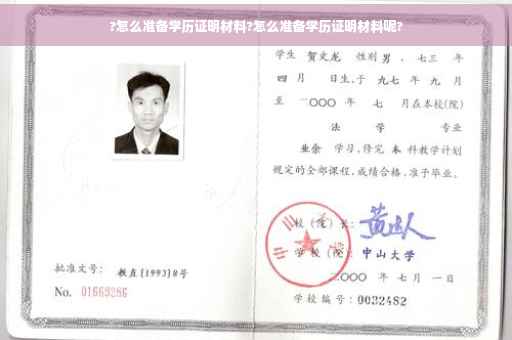 ?怎么准备学历证明材料?怎么准备学历证明材料呢?
学生 贺文龙 性别 男 、七三 年
四 月 日生,于 九七 年 九 月
至 二〇〇〇 年 七 月在本校(院)
法 学 专业
业余 学习,修完 本 科教学计划
规定的全部课程,成绩合格,准予毕业。
校 (院) 长:
学 校 (院): 中山大学
二〇〇〇 年 七 月 一 日
学校编号: 0032482
批准文号: 教直[1993]8号
No. 01669286
中山大学